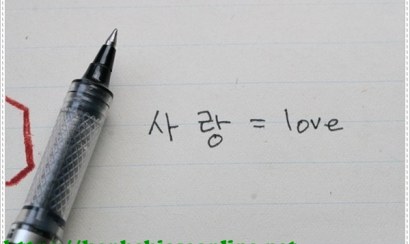 사랑 = love